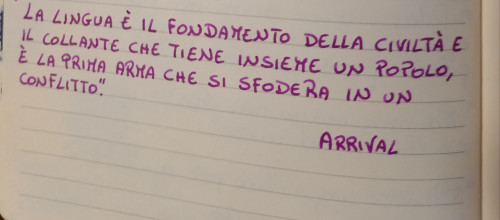 LA LINGUA È IL FONDAMENTO DELLA CIVILTÀ E
IL COLLANTE CHE TIENE INSIEME UN POPOLO,
È LA PRIMA ARMA CHE SI SFODERA IN UN
CONFLITTO".
ARRIVAL